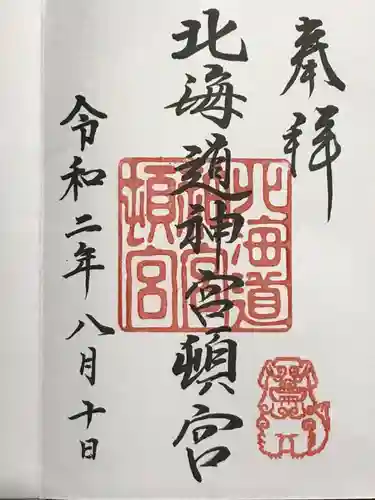 奉拝
北海道神宮頓宮
令和二年八月十日
北海道
神宮
頓宮